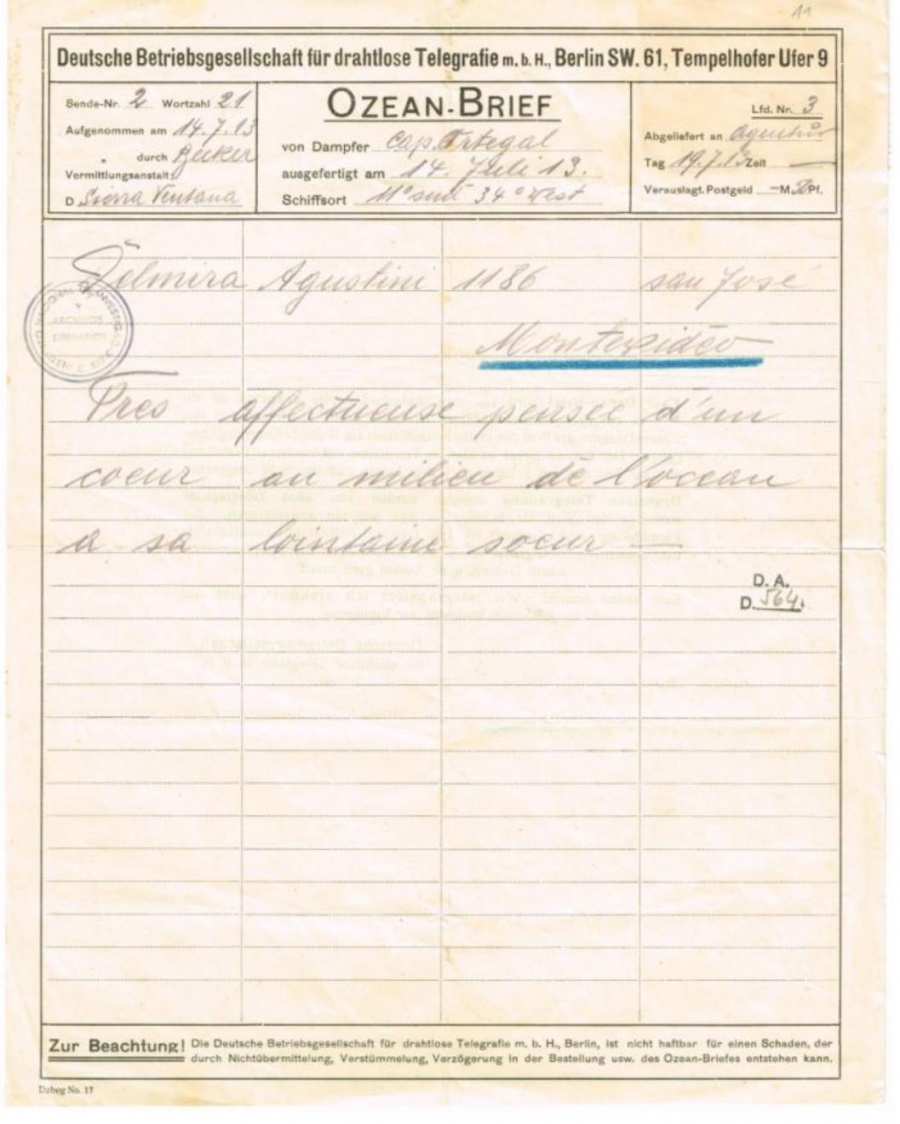 11
Deutsche Betriebsgesellschaft für drahtlose Telegrafie m. b. H., Berlin SW. 61, Tempelhofer Ufer 9
Sende-Nr. 2 Wortzahl 21
Aufgenommen am 14.7.13
" durch Becker
Vermittlungsanstalt:
D. Sierra Ventana
OZEAN-BRIEF
von Dampfer Cap. Ortegal
ausgefertigt am 14. Juli 13.
Schiffsort 11° sud 34° west
Lfd. Nr. 3
Abgeliefert an Agentur
Tag 19.7.13 Zeit —
Verauslagt. Postgeld — M. Pf.
Delmira Agustini 1186 san José
Montevideo
Tres affectueuse pensée d'un
coeur au milieu de l'ocean
a sa lointaine soeur —
ARCHIVOS
LITERARIOS
D. A.
D. 564.
Zur Beachtung! Die Deutsche Betriebsgesellschaft für drahtlose Telegrafie m. b. H., Berlin, ist nicht haftbar für einen Schaden, der
durch Nichtübermittelung, Verstümmelung, Verzögerung in der Bestellung usw. des Ozean-Briefes entstehen kann.
Debeg No. 17